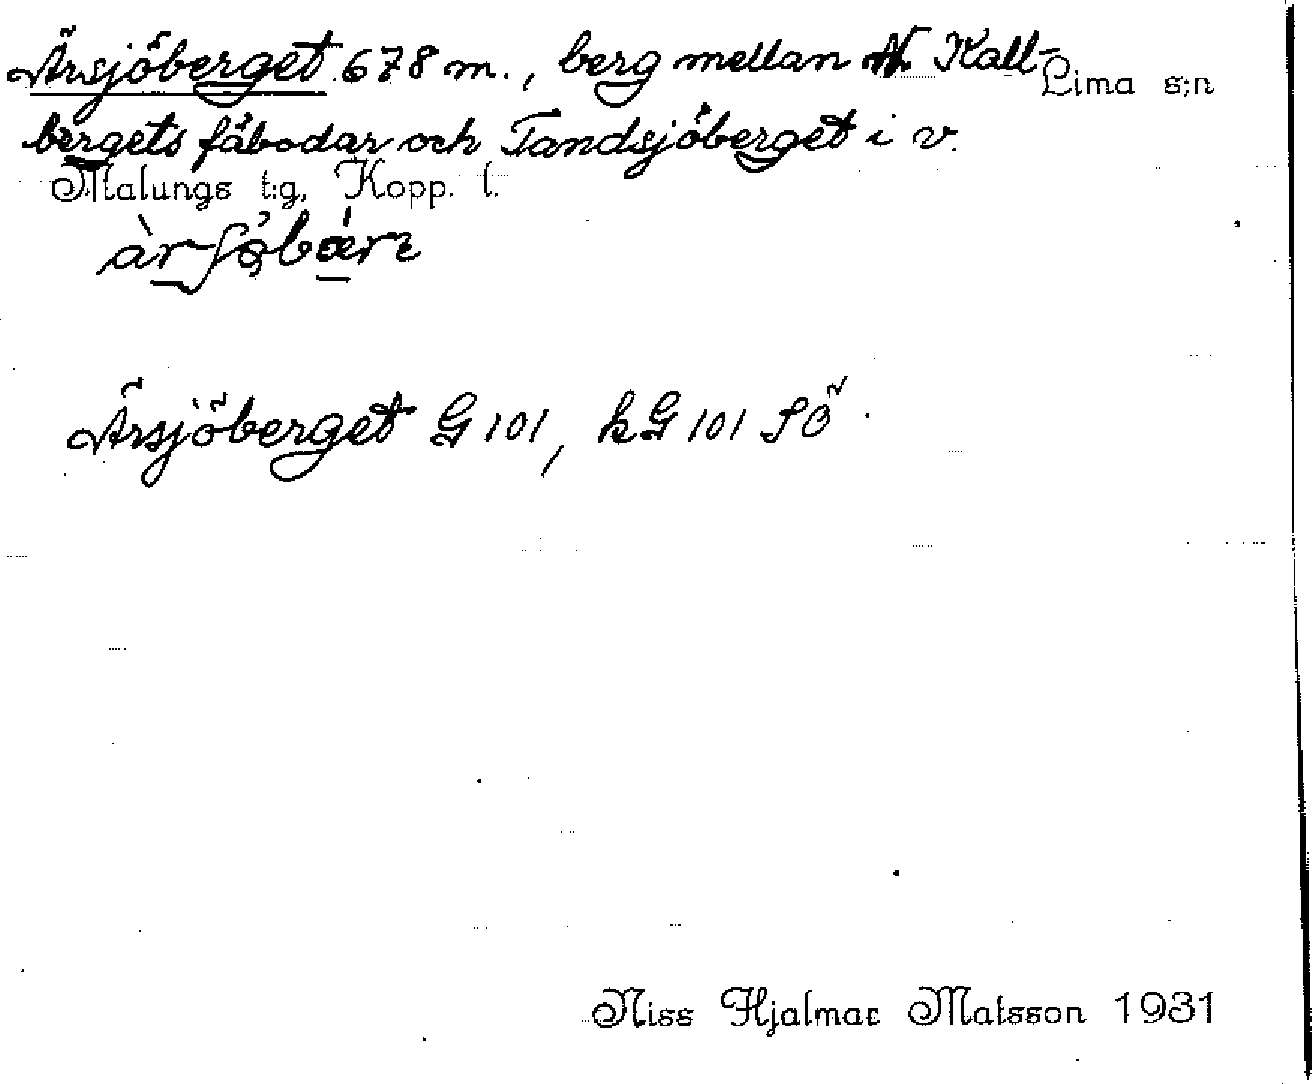 Ärsjöberget 678 m., berg mellan N. Kall-
Lima s:n
bergets fäbodar och Tandsjöberget i v.
Malungs t:g, Kopp. l.
Ärsjöberget G 101, kG 101 SÖ
Niss Hjalmar Matsson 1931